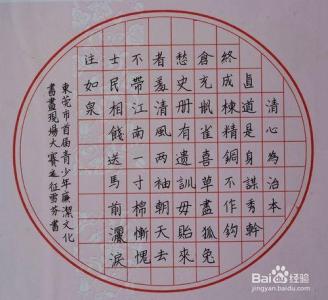 清心為治本
直道是身謀秀幹
終成棟精銅不作鈎
倉充鼠雀喜草盡狐兔
愁史册有遺訓毋貽來
者羞清風兩袖朝天去
不帶江南一寸棉慚愧
士民相餞送馬前灑淚
注如泉
東莞市首届青少年廉潔文化
書畫現場大賽
Baidu经验
jingyan.baidu.com